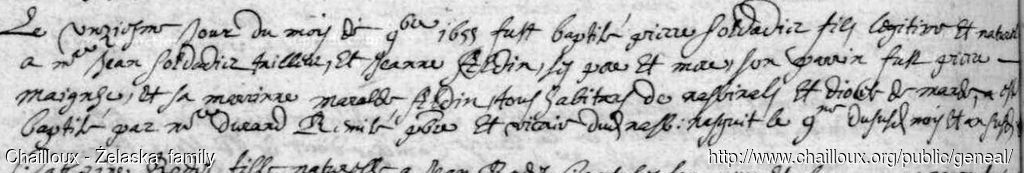 Le unziesme jour du mois de 9bre 1655 fust baptisé pierre Soldadier fils legitime et naturel
a me Jean Soldadier tailleur, et Jeanne Aldin, ses pere et mere, son parrin fust pierre
et sa marrinne Aldin, tous habitans de nasbinals et diocese de mande, a esté
baptisé par mre Durand pbre et vicaire dud nasb: nasquit le 9me dususd mois et an susd
Chailloux - Żelaska family
http://www.chailloux.org/public/geneal/